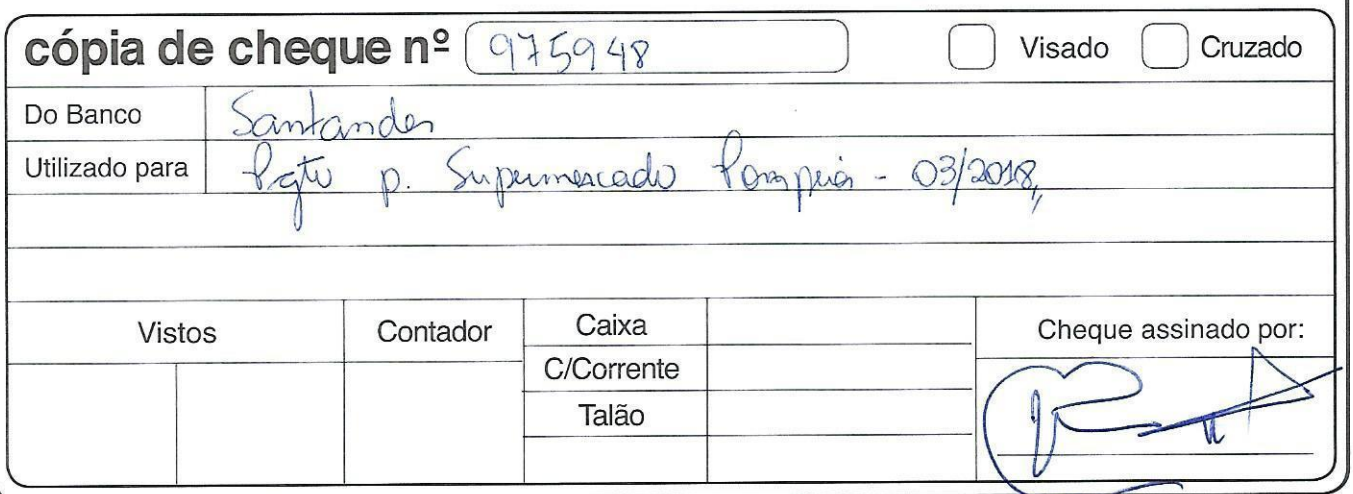 cópia de cheque nº 975948 Visado Cruzado
Do Banco Santander
Utilizado para Pgto p. Supermercado Pompéia - 03/2018,,
Vistos Contador Caixa Cheque assinado por:
C/Corrente
Talão